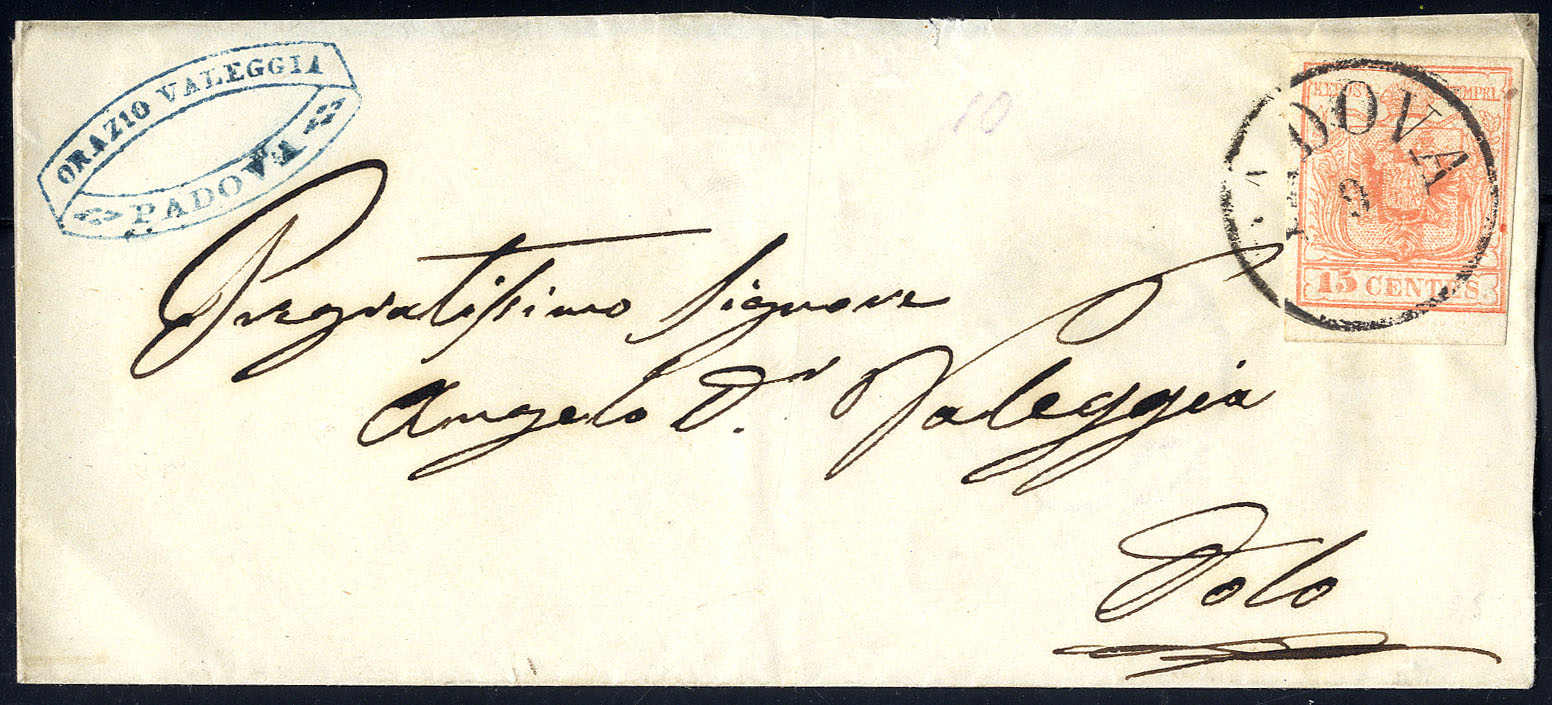 ORAZIO VALEGGIA
PADOVA
10
KKPOST-STEMPEL
15 CENTES
PADOVA
9
Pregiatissimo Signore
Angelo Dr Valeggia
Dolo